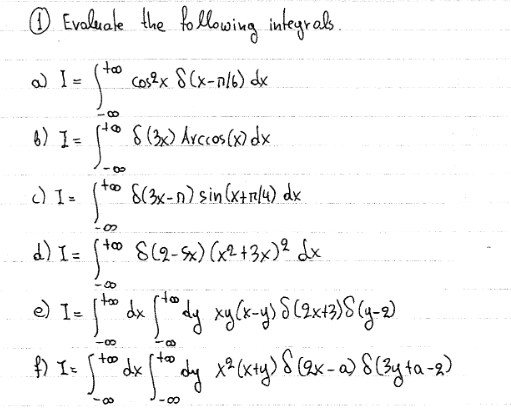 ① Evaluate the following integrals.
a) I = ∫_{-∞}^{+∞} cos²x δ(x-π/6) dx
b) I = ∫_{-∞}^{+∞} δ(3x) Arccos(x) dx
c) I = ∫_{-∞}^{+∞} δ(3x-π) sin(x+π/4) dx
d) I = ∫_{-∞}^{+∞} δ(2-5x) (x²+3x)² dx
e) I = ∫_{-∞}^{+∞} dx ∫_{-∞}^{+∞} dy xy(x-y) δ(2x+3) δ(y-2)
f) I = ∫_{-∞}^{+∞} dx ∫_{-∞}^{+∞} dy x²(x+y) δ(2x-a) δ(3y+a-2)